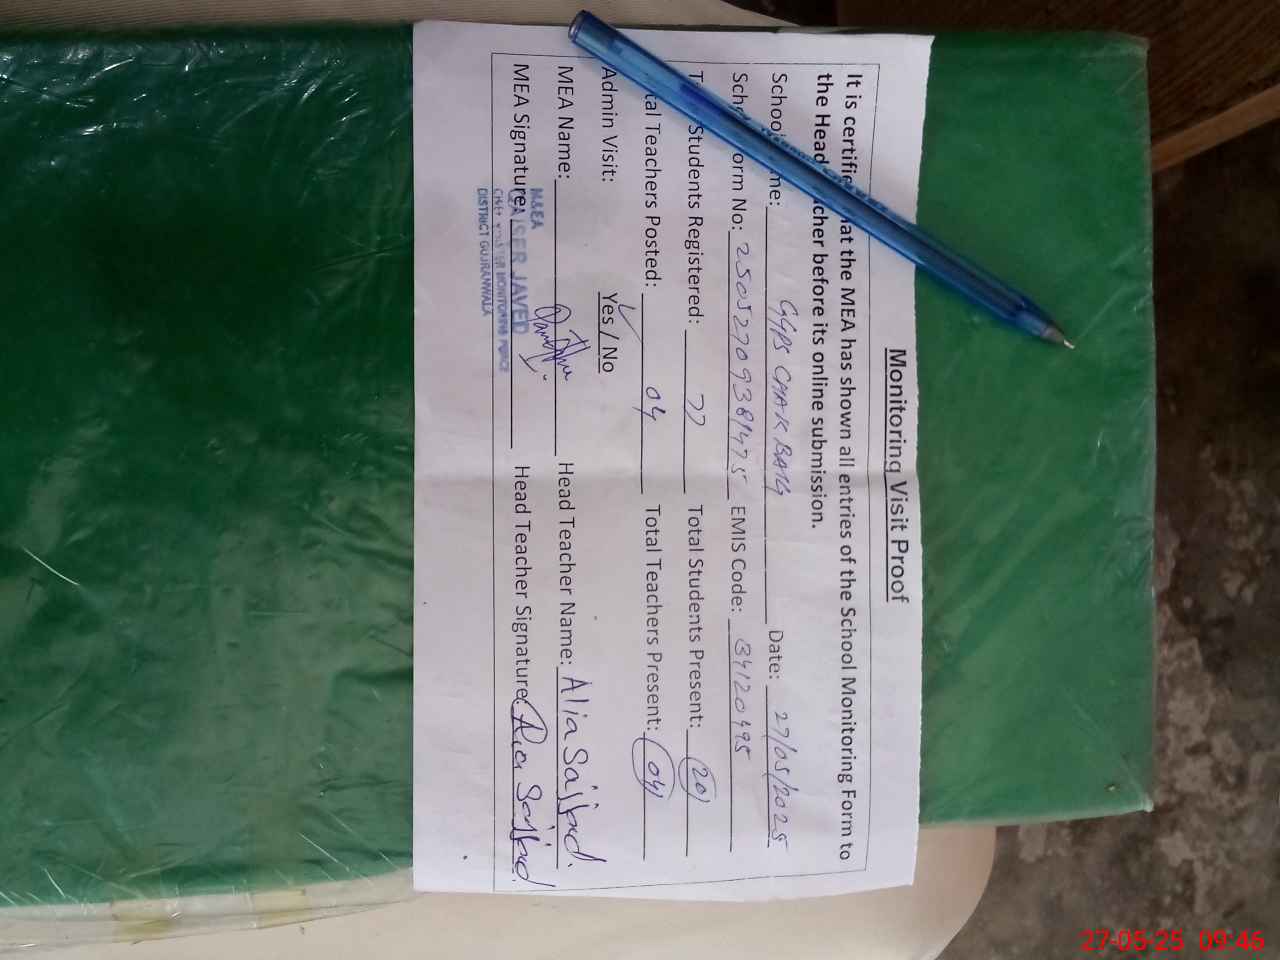 Monitoring Visit Proof
It is certifie hat the MEA has shown all entries of the School Monitoring Form to
the Head cher before its online submission.
School me: GGPS CHAK BAIG Date: 27/05/2025
Scho orm No: EMIS Code: 34120495
T Students Registered: 77 Total Students Present: 20
tal Teachers Posted: 04 Total Teachers Present: 04
Admin Visit: Yes / No
MEA Name: Head Teacher Name: Alia Sajjad.
MEA Signature: Head Teacher Signature: Alia Sajjad
M&EA
QAISER JAVED
CHIEF MINISTER MONITORING FORCE
DISTRICT GUJRANWALA
27-05-25 09:46